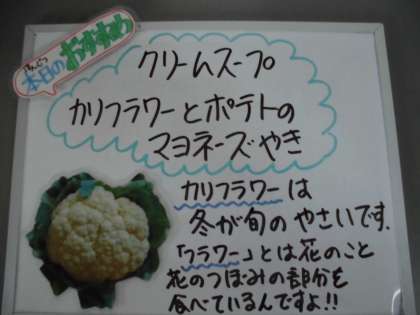 本日のおすすめ
クリームスープ
カリフラワーとポテトの
マヨネーズやき
カリフラワーは
冬が旬のやさいです。
「フラワー」とは花のこと
花のつぼみの部分を
食べているんですよ!!